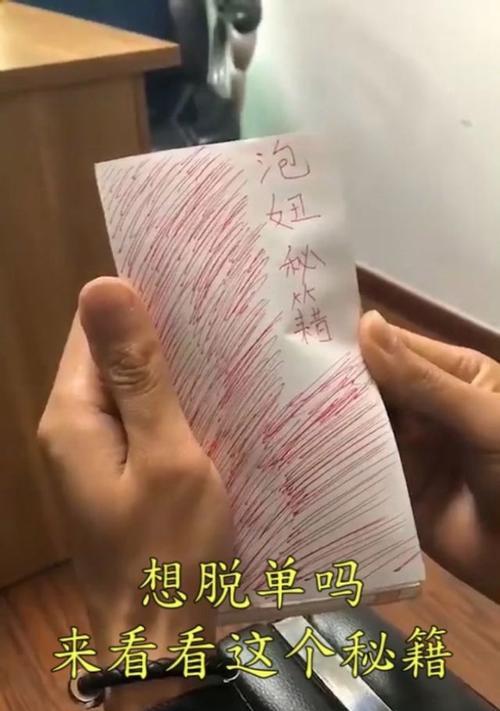 泡妞秘籍
想脱单吗
来看看这个秘籍